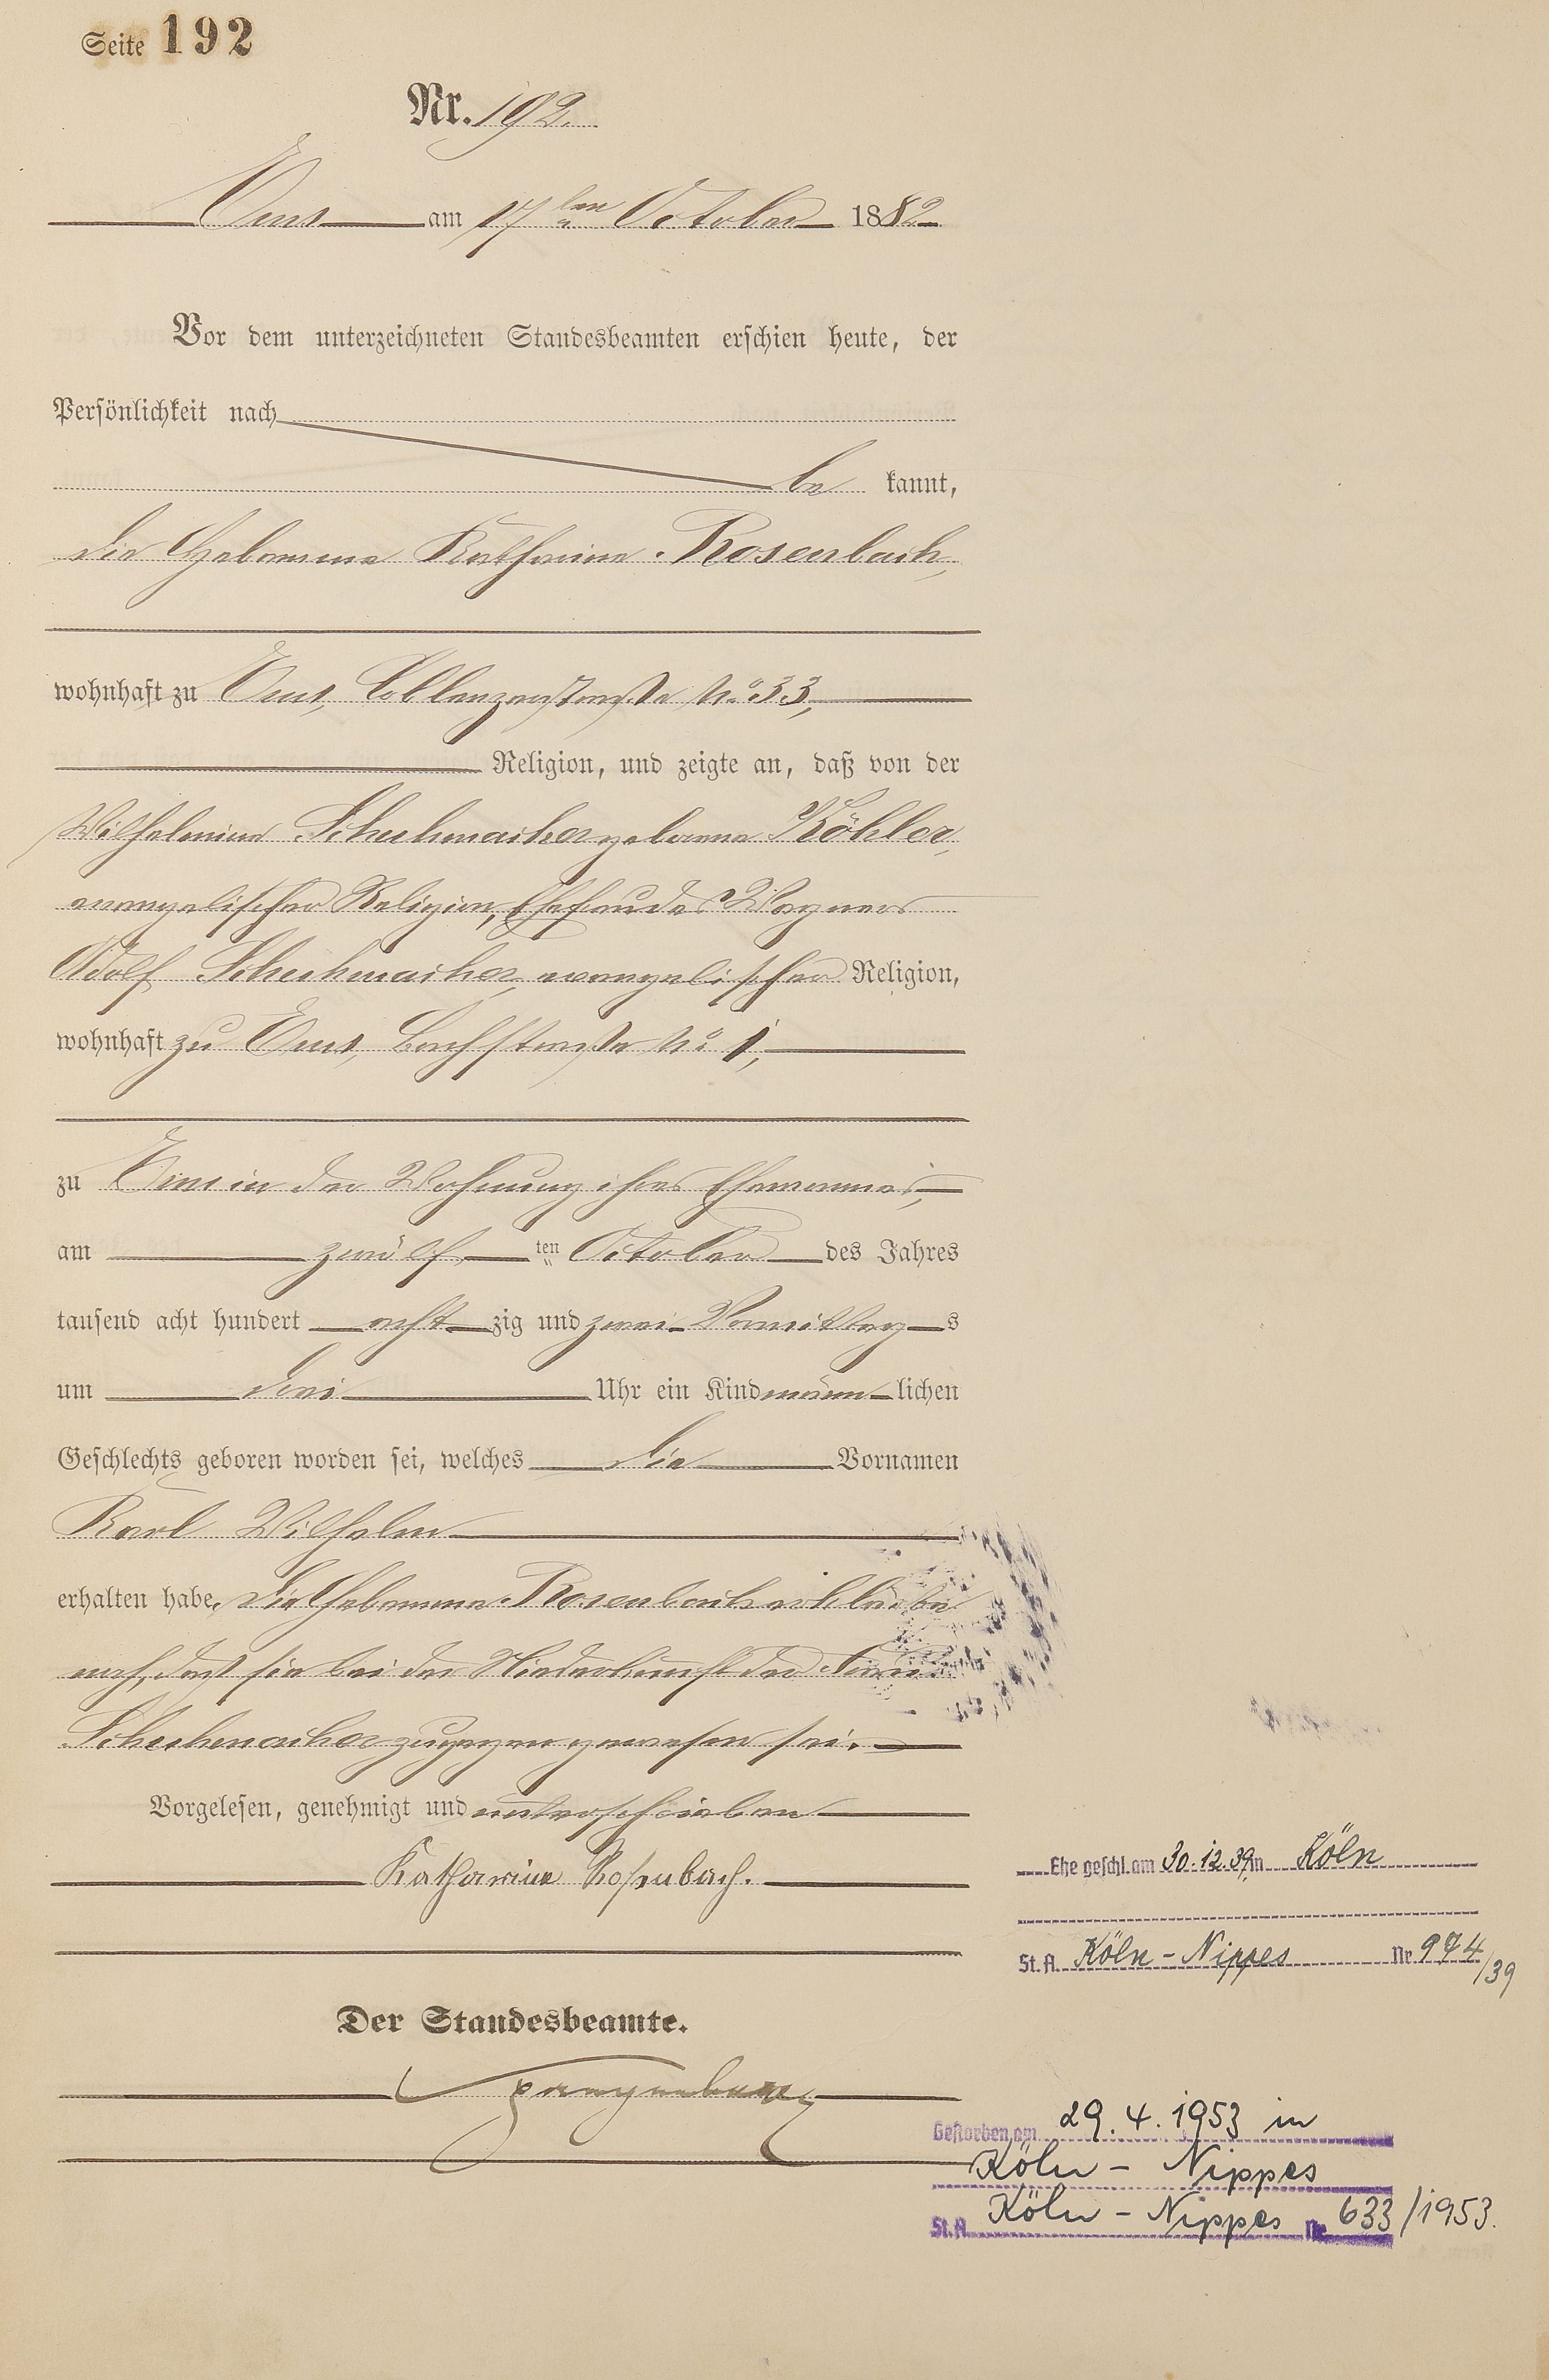 Seite 192
Nr. 192.
Ems am 17ten October 1882
Vor dem unterzeichneten Standesbeamten erschien heute, der
Persönlichkeit nach
be kannt,
die Hebamme Katharina Rosenbach,
wohnhaft zu Ems, Coblenzerstraße No 33,
Religion, und zeigte an, daß von der
Wilhelmine Schuhmacher geborene Köhler,
evangelischer Religion, Ehefrau des Wagners
Adolf Schuhmacher, evangelischer Religion,
wohnhaft zu Ems, Bachstraße No 1,
zu Ems in der Wohnung ihres Ehemannes,
am zwölften October des Jahres
tausend acht hundert achtzig und zwei Vormittags
um drei Uhr ein Kind männlichen
Geschlechts geboren worden sei, welches die Vornamen
Karl Wilhelm
erhalten habe. Die Hebamme Rosenbach erklärte
noch, daß sie bei der Niederkunft der Frau
Schuhmacher zugegen gewesen sei.
Vorgelesen, genehmigt und unterschrieben
Katharina Rosenbach.
Der Standesbeamte.
Spangenberg
Ehe geschl. am 30.12.39 in Köln
St. A. Köln-Nippes Nr. 974/39
Gestorben am 29.4.1953 in
Köln - Nippes
St. A. Köln - Nippes Nr. 633/1953.